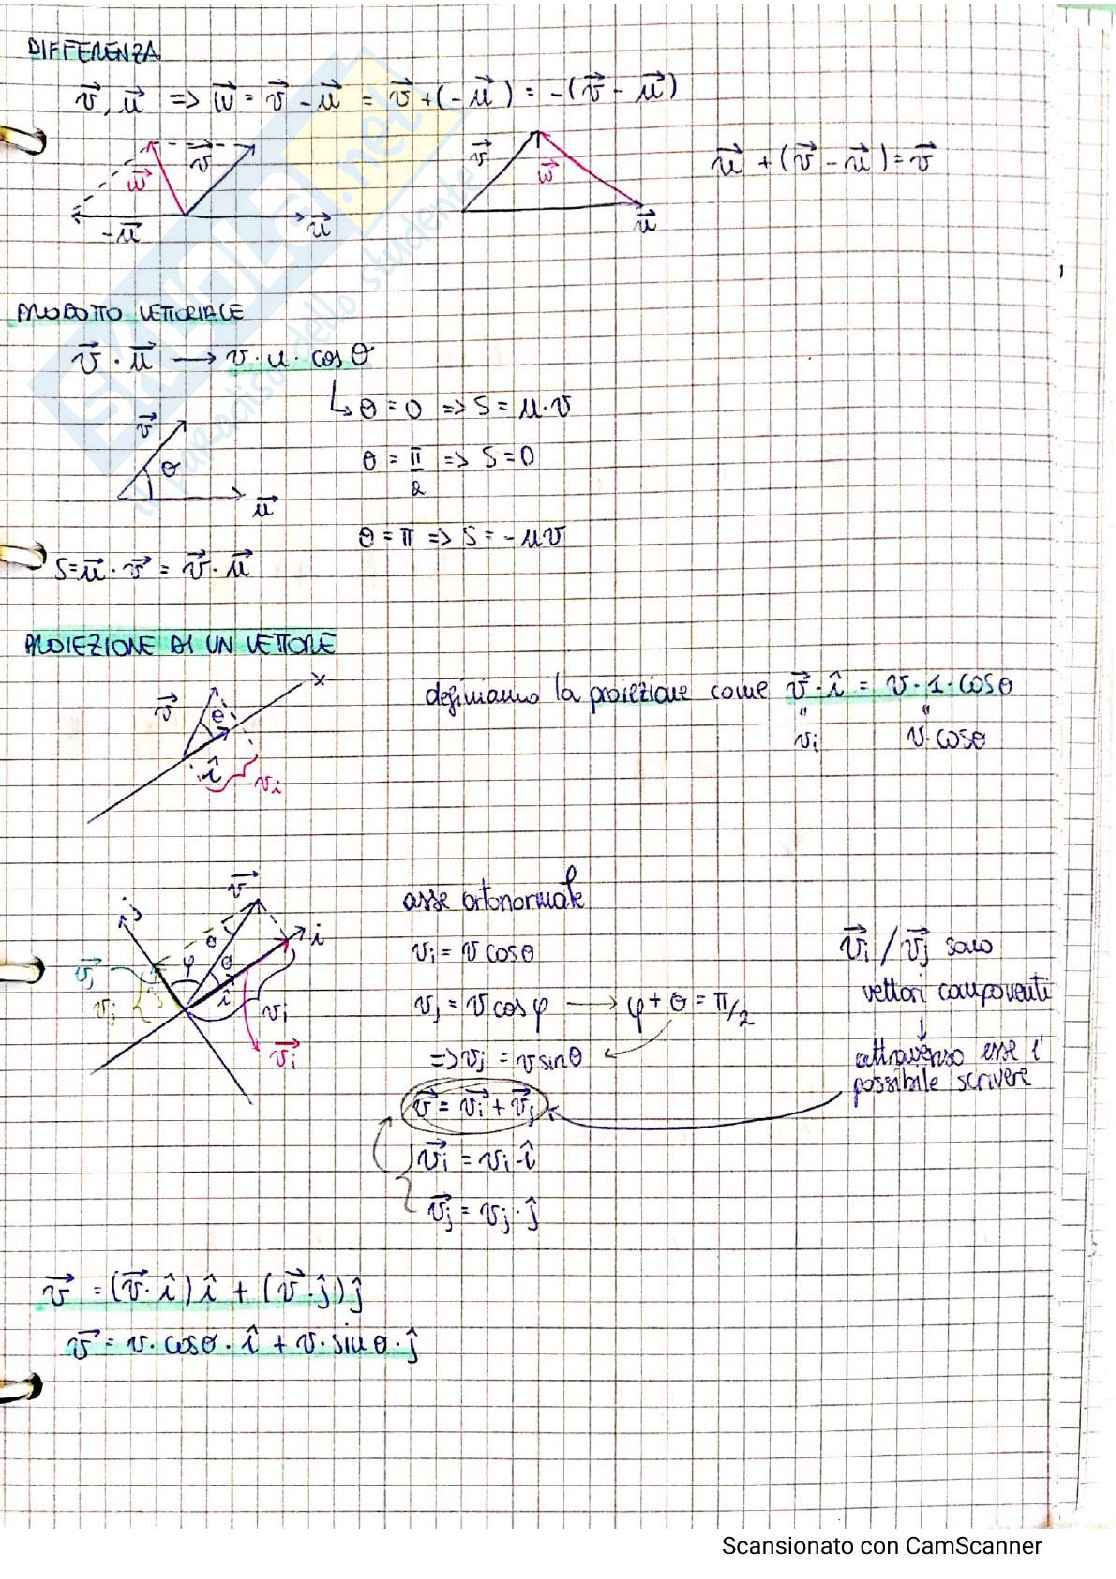 DIFFERENZA
v⃗, u⃗ => w⃗ = v⃗ - u⃗ = v⃗ + (-u⃗) = -(v⃗ - u⃗)
v⃗ w⃗ -u⃗ u⃗
v⃗ w⃗ u⃗
u⃗ + (v⃗ - u⃗) = v⃗
PRODOTTO VETTORIALE
v⃗ · u⃗ → v · u · cos θ
↳ θ = 0 => S = u · v
v⃗ θ u⃗
θ = π/2 => S = 0
θ = π => S = - uv
S = u⃗ · v⃗ = v⃗ · u⃗
PROIEZIONE DI UN VETTORE
v⃗ θ î x vi
definiamo la proiezione come v⃗ · î = v · 1 · cosθ
" "
vi v · cosθ
j v⃗ i θ φ θ î
v⃗j vj vi v⃗i
asse ortonormale
vi = v cosθ
vj = v cosφ → φ + θ = π/2
=> vj = v sinθ
v⃗ = v⃗i + v⃗j
v⃗i = vi · î
v⃗j = vj · ĵ
v⃗i / v⃗j sono
vettori componenti
↓
attraverso esse è
possibile scrivere
v⃗ = (v⃗ · î) î + (v⃗ · ĵ) ĵ
v⃗ = v · cosθ · î + v · sinθ · ĵ
Scansionato con CamScanner